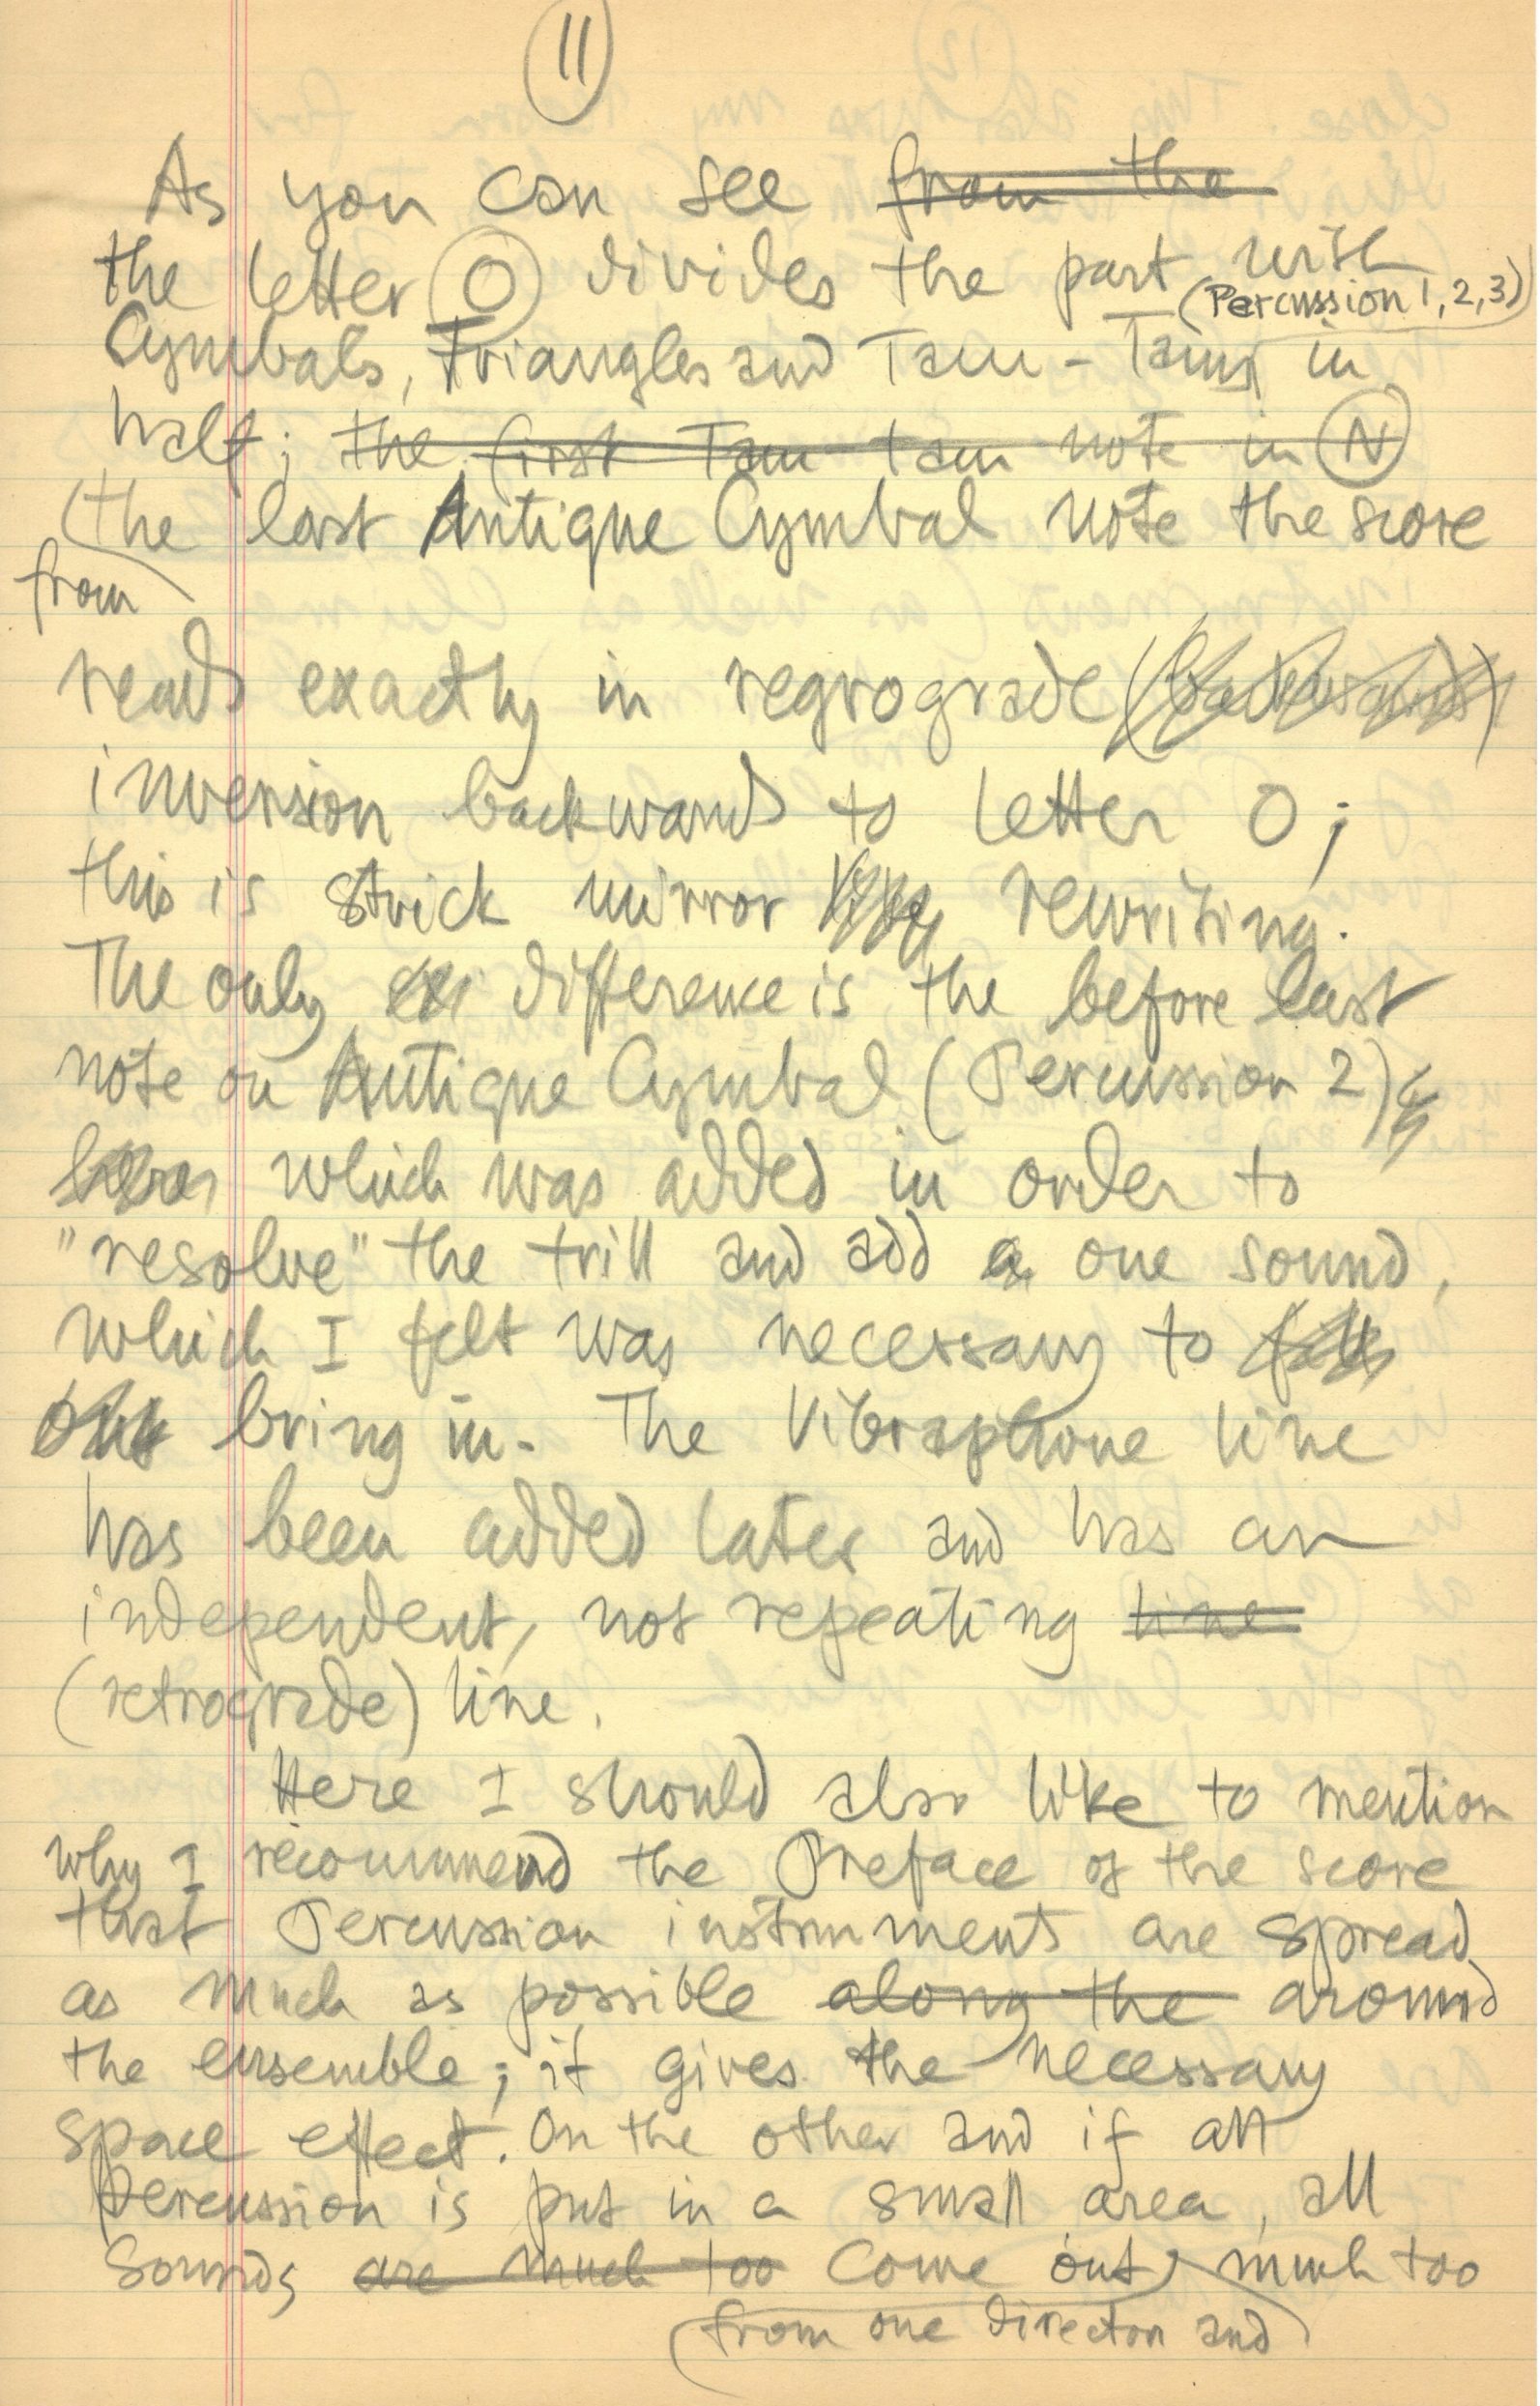 11
As you can see from the
the letter O divides the part with
(Percussion 1, 2, 3)
Cymbals, Triangles and Tam-Tams in
half; the first Tam tam note in N
(the last Antique Cymbal note the score
from
reads exactly in regrograde (backwards)
inversion backwards to letter O;
this is strick mirror rewriting.
The only difference is the before last
note on Antique Cymbal (Percussion 2)
which was added in order to
"resolve" the trill and add a one sound,
which I felt was necessary to
bring in. The Vibraphone line
has been added later and has an
independent, not repeating line
(retrograde) line.
Here I should also like to mention
why I recommend the Preface of the score
that Percussion instruments are spread
as much as possible along the around
the ensemble; it gives the necessary
space effect. On the other and if all
percussion is put in a small area, all
sounds are much too come out much too
(from one directon and)